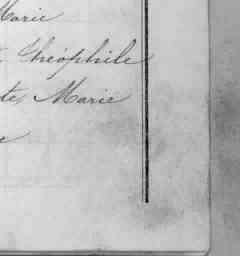 Marie
Théophile
te, Marie